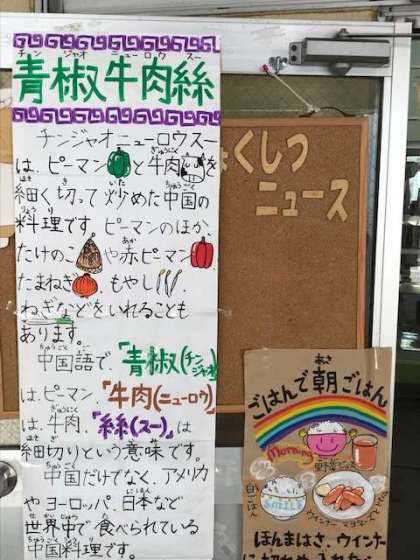 チンジャオニューロウスー
青椒牛肉絲
チンジャオニューロウスー
は、ピーマンと牛肉を
細く切って炒めた中国の
料理です。ピーマンのほか、
たけのこや赤ピーマン、
たまねぎ、もやし、
ねぎなどをいれることも
あります。
中国語で、「青椒(チン
ジャオ)」
は、ピーマン、「牛肉(ニューロウ)」
は、牛肉、「絲(スー)」は
細切りという意味です。
中国だけでなく、アメリカ
やヨーロッパ、日本など
世界中で食べられている
中国料理です。
くしつ
ニュース
ごはんで朝ごはん
Morning
野菜
SMILE
ウインナー
ほんまはさ、ウインナー